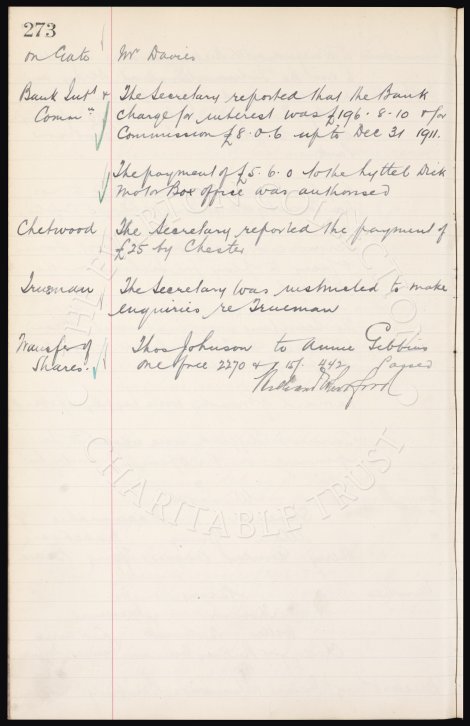 273
on Gate Mr Davies
Bank Intt & The Secretary reported that the Bank
Commn Charge for interest was £196.8.10 & for
Commission £8.0.6 up to Dec 31 1911.
The payment of £5.6.0 to the Lyttel Dick
Motor Box office was authorised
Chetwood The Secretary reported the payment of
£25 by Chester
Trueman The Secretary was instructed to make
enquiries re Trueman
Transfer of Thos Johnson to Annie Gibbins
Shares. one free 2270 & 15/. 442 Passed
THE EVERTON COLLECTION
CHARITABLE TRUST